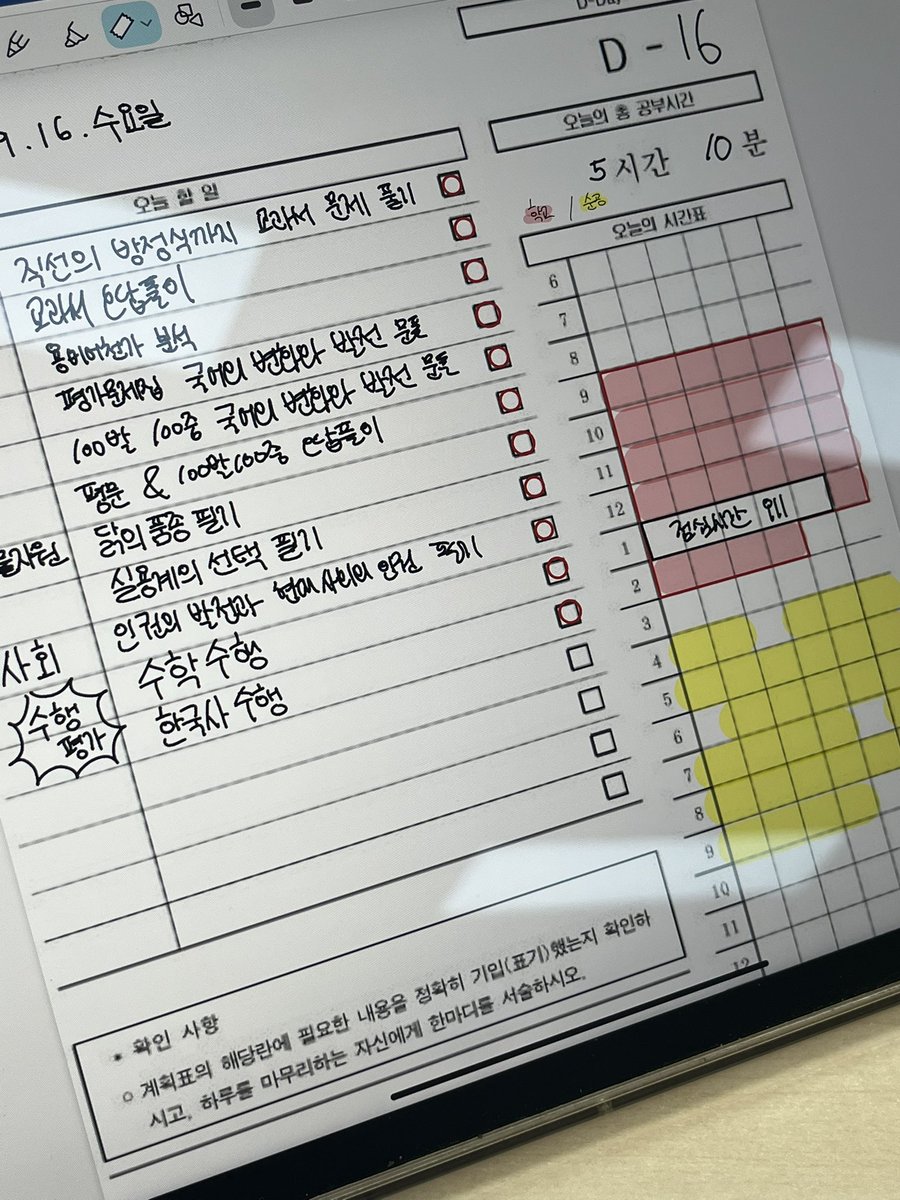 D-Day
D-16
9.16.수요일
오늘의 총 공부시간
5시간 10분
오늘 할 일
학교 / 순공
오늘의 시간표
직선의 방정식까지 교과서 문제 풀기
교과서 오답풀이
용비어천가 분석
평가문제집 국어의 변화와 발전 문풀
100발 100중 국어의 변화와 발전 문풀
평문 & 100발100중 오답풀이
닭의 품종 필기
실용계의 선택 필기
사회 인권의 발전과 현대사회의 인권 필기
수행평가 수학 수행
한국사 수행
6
7
8
9
10
11
12
점심시간
1
2
3
4
5
6
7
8
9
10
11
12
* 확인 사항
○ 계획표의 해당란에 필요한 내용을 정확히 기입(표기)했는지 확인하
시고, 하루를 마무리하는 자신에게 한마디를 서술하시오.